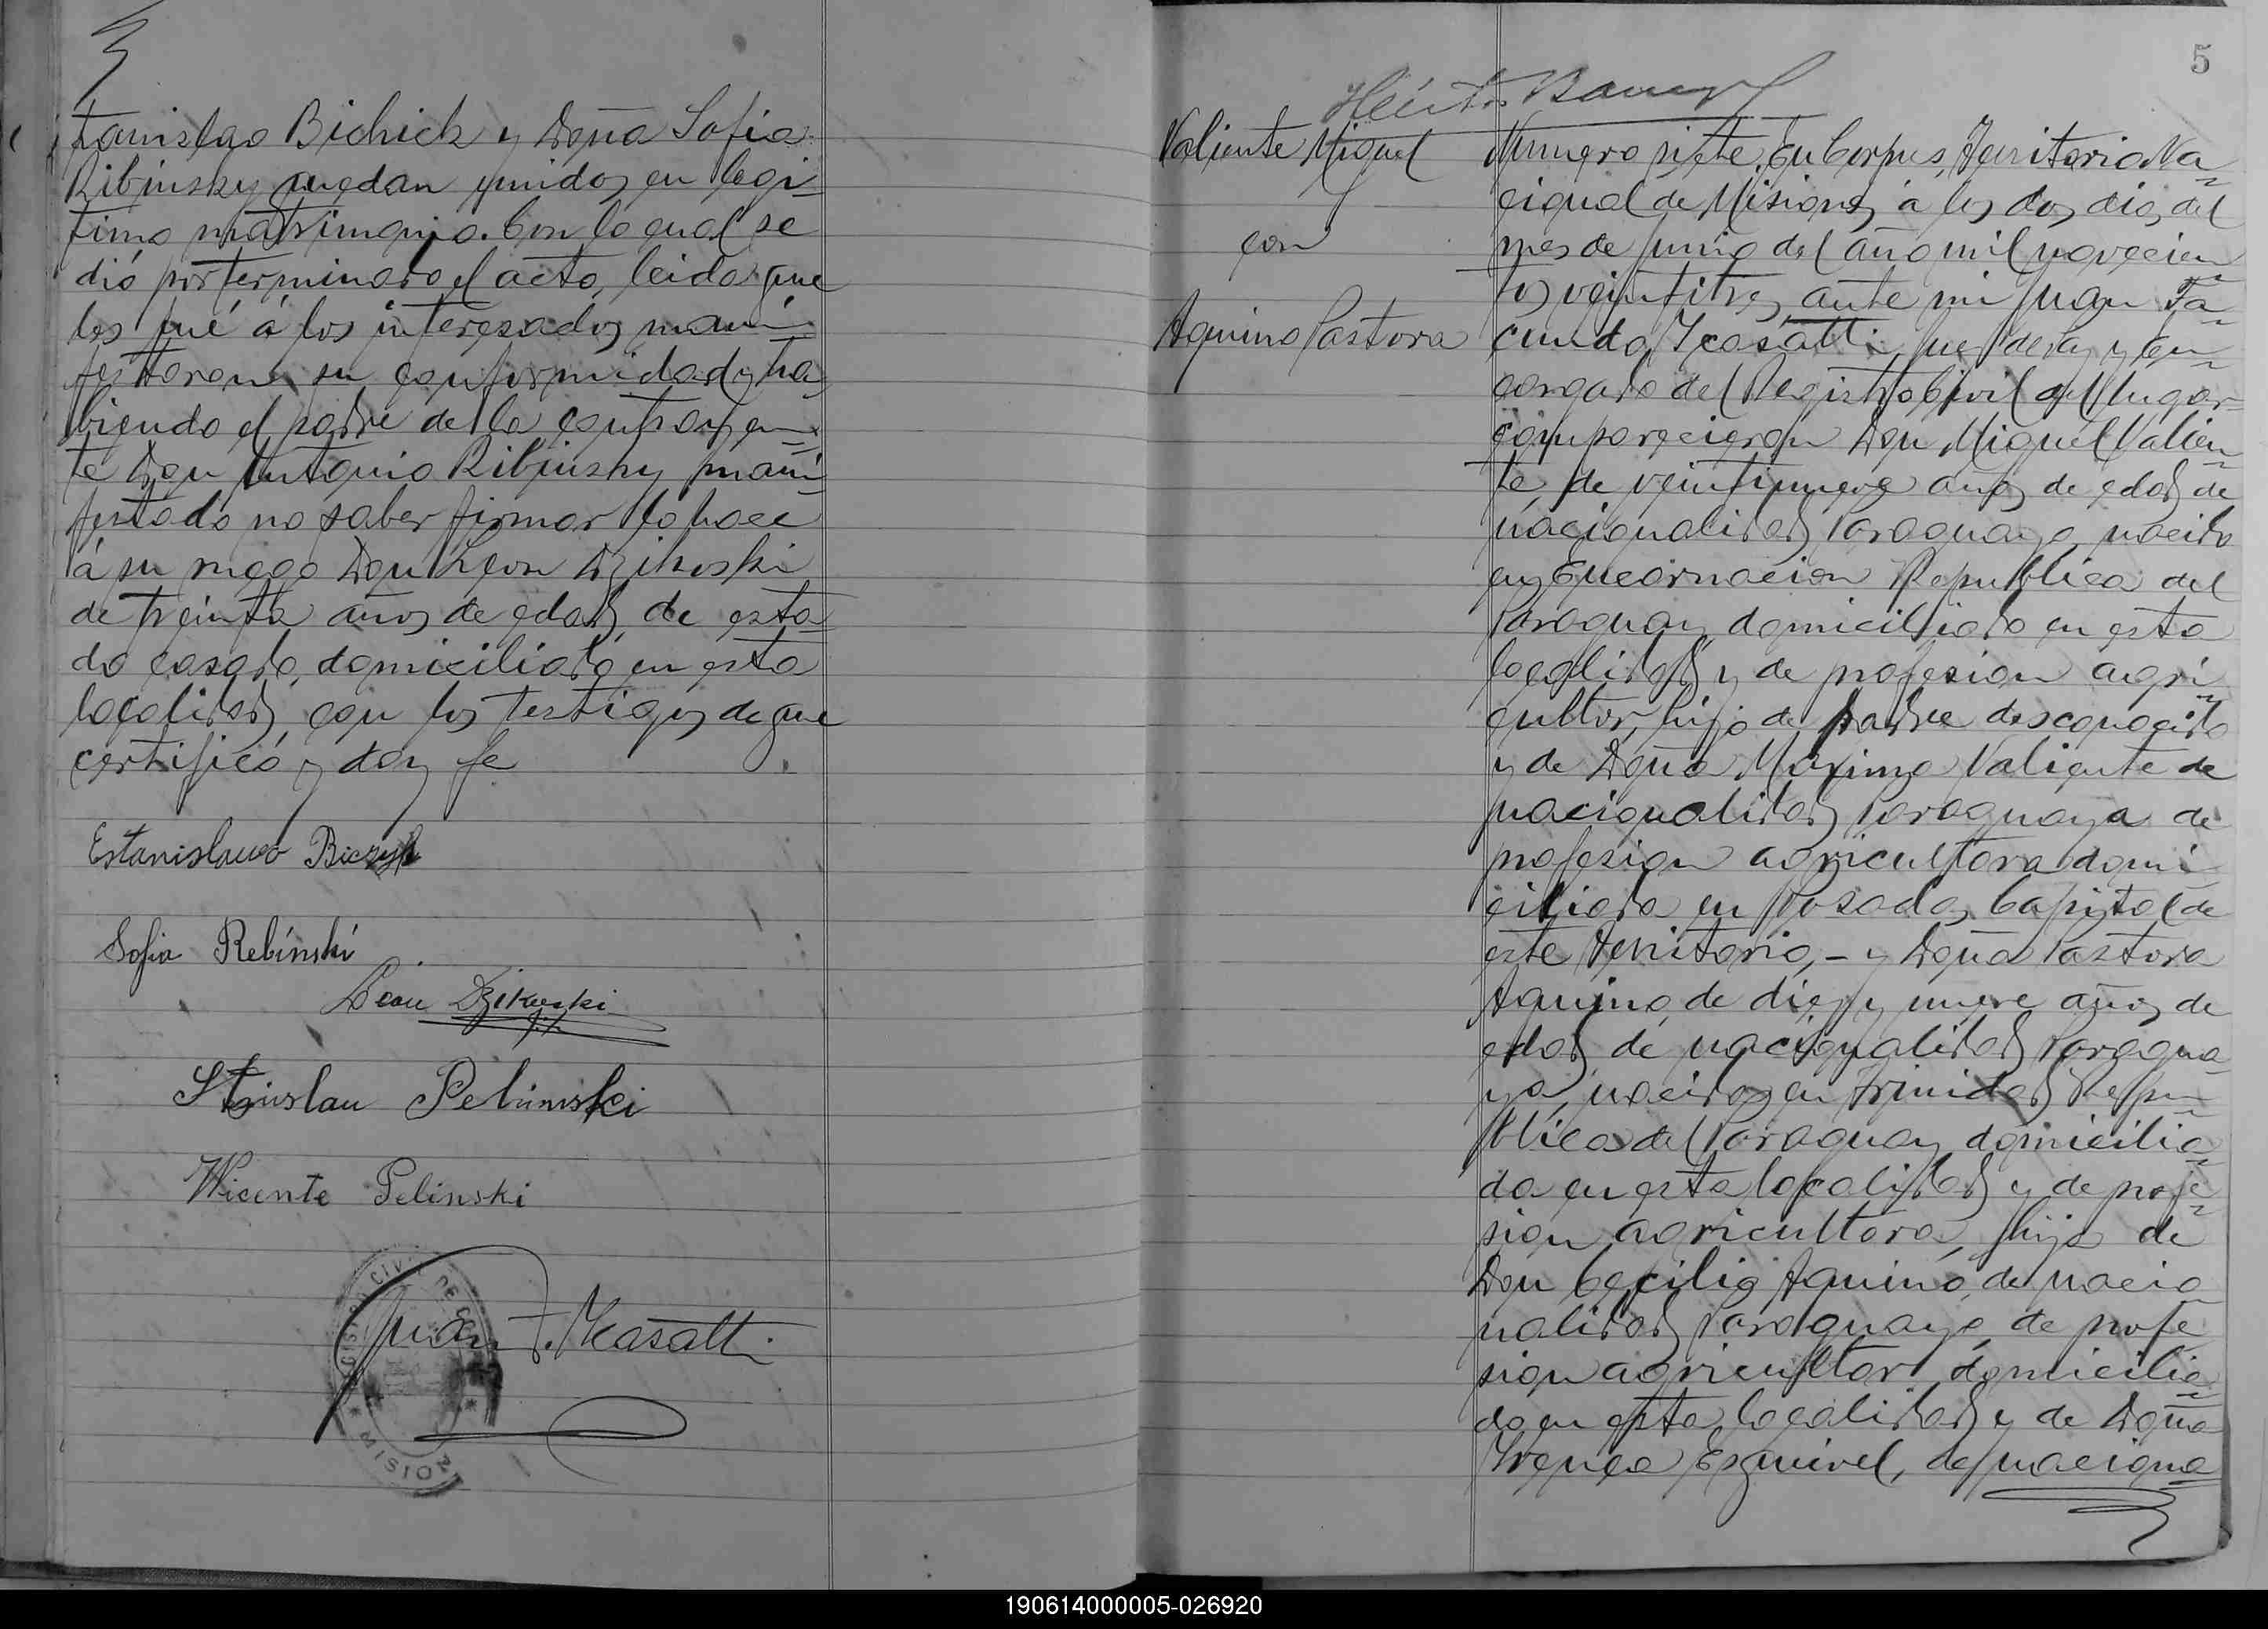 tanislao Bichick y Doña Sofia
Ribinsky quedan unidos en legi-
timo matrimonio. Con lo cual se
dió por terminado el acto, leida que
les fué á los interesados, mani-
festaron su conformidad y ha-
biendo el padre de la contrayen-
te Don Antonio Ribinsky mani-
festado no saber firmar lo hace
á su ruego Don Leon Dzikoski
de treinta años de edad, de esta-
do casado, domiciliado en esta
localidad, con los testigos de que
certifico y doy fe
Estanislauo Biczyk
Sofia Rebinski
Leon Dzikowski
Stanislau Pelinski
Wicente Pelinski
REGISTRO CIVIL DE
MISIONES
Juan F. Ycasatti
5
Valiente Miguel
con
Aquino Pastora
Numero siete. En Corpus, Territorio Na-
cional de Misiones, á los dos dias del
mes de junio del año mil novecien-
tos veintitres, ante mi Juan Fa-
cundo Ycasatti, juez de Paz y En-
cargado del Registro Civil del lugar
comparecieron Don Miguel Valien-
te, de veintinueve años de edad, de
nacionalidad Paraguayo, nacido
en Encarnacion Republica del
Paraguay, domiciliado en esta
localidad y de profesion agri-
cultor, hijo de padre desconocido
y de Doña Maxima Valiente de
nacionalidad Paraguaya de
profesion agricultora domi-
ciliada en Posadas, Capital de
este Territorio, - y Doña Pastora
Aquino, de diez y nueve años de
edad, de nacionalidad Paragua-
ya, nacida en Trinidad Repu-
blica del Paraguay domicilia-
da en esta localidad y de profe-
sion agricultora, hija de
Don Cecilio Aquino, de nacio
nalidad Paraguayo, de profe
sion agricultor domicilia-
do en esta localidad y de Doña
Irenea Esquivel, de naciona
190614000005-026920